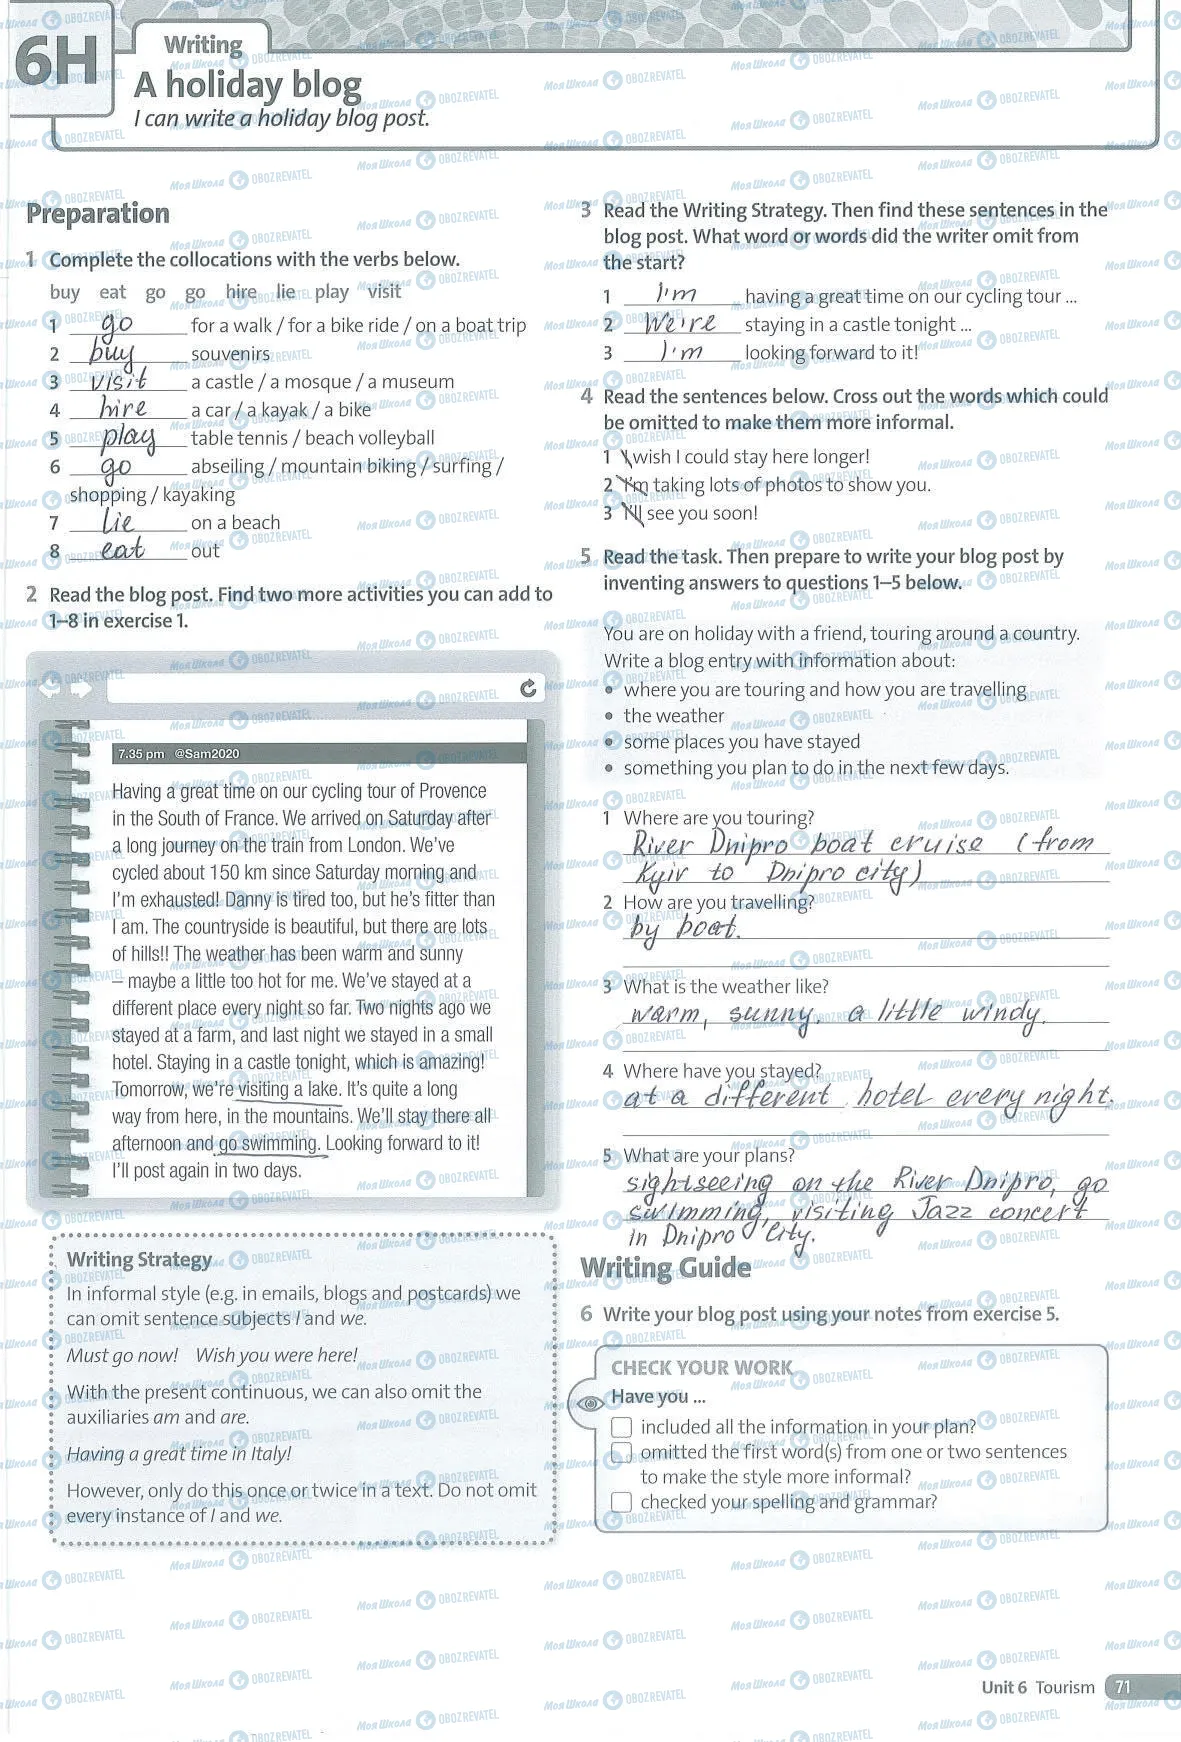 6H
Writing
A holiday blog
I can write a holiday blog post.
Preparation
1 Complete the collocations with the verbs below.
buy eat go go hire lie play visit
1 go for a walk / for a bike ride / on a boat trip
2 buy souvenirs
3 visit a castle / a mosque / a museum
4 hire a car / a kayak / a bike
5 play table tennis / beach volleyball
6 go abseiling / mountain biking / surfing /
shopping / kayaking
7 lie on a beach
8 eat out
2 Read the blog post. Find two more activities you can add to
1–8 in exercise 1.
7.35 pm @Sam2020
Having a great time on our cycling tour of Provence
in the South of France. We arrived on Saturday after
a long journey on the train from London. We've
cycled about 150 km since Saturday morning and
I'm exhausted! Danny is tired too, but he's fitter than
I am. The countryside is beautiful, but there are lots
of hills!! The weather has been warm and sunny
– maybe a little too hot for me. We've stayed at a
different place every night so far. Two nights ago we
stayed at a farm, and last night we stayed in a small
hotel. Staying in a castle tonight, which is amazing!
Tomorrow, we're visiting a lake. It's quite a long
way from here, in the mountains. We'll stay there all
afternoon and go swimming. Looking forward to it!
I'll post again in two days.
Writing Strategy
In informal style (e.g. in emails, blogs and postcards) we
can omit sentence subjects I and we.
Must go now! Wish you were here!
With the present continuous, we can also omit the
auxiliaries am and are.
Having a great time in Italy!
However, only do this once or twice in a text. Do not omit
every instance of I and we.
3 Read the Writing Strategy. Then find these sentences in the
blog post. What word or words did the writer omit from
the start?
1 I'm having a great time on our cycling tour ...
2 We're staying in a castle tonight ...
3 I'm looking forward to it!
4 Read the sentences below. Cross out the words which could
be omitted to make them more informal.
1 I wish I could stay here longer!
2 I'm taking lots of photos to show you.
3 I'll see you soon!
5 Read the task. Then prepare to write your blog post by
inventing answers to questions 1–5 below.
You are on holiday with a friend, touring around a country.
Write a blog entry with information about:
• where you are touring and how you are travelling
• the weather
• some places you have stayed
• something you plan to do in the next few days.
1 Where are you touring?
River Dnipro boat cruise (from
Kyiv to Dnipro city)
2 How are you travelling?
by boat.
3 What is the weather like?
warm, sunny, a little windy.
4 Where have you stayed?
at a different hotel every night.
5 What are your plans?
sightseeing on the River Dnipro, go
swimming, visiting Jazz concert
in Dnipro city.
Writing Guide
6 Write your blog post using your notes from exercise 5.
CHECK YOUR WORK
Have you ...
included all the information in your plan?
omitted the first word(s) from one or two sentences
to make the style more informal?
checked your spelling and grammar?
Unit 6 Tourism 71
Моя Школа OBOZREVATEL